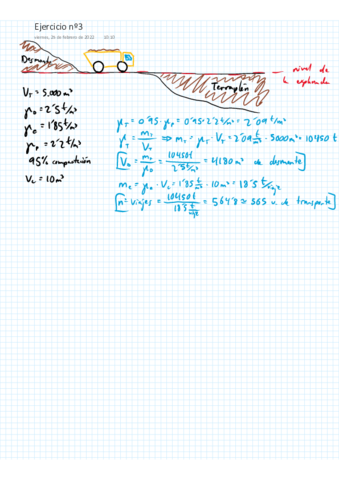 Ejercicio nº3
viernes, 25 de febrero de 2022
Desmonte
Terraplén
nivel de
la explanada
V_T = 5.000 m³
ρ_D = 2'5 t/m³
ρ_e = 1'85 t/m³
ρ_p = 2'2 t/m³
95% compactación
V_c = 10 m³
ρ_T = 0'95 · ρ_p = 0'95 · 2'2 t/m³ = 2'09 t/m³
ρ_T = m_T / V_T ⇒ m_T = ρ_T · V_T = 2'09 t/m³ · 5000 m³ = 10450 t
[V_D = m_D / ρ_D = 10450 t / 2'5 t/m³ = 4180 m³ de desmonte]
m_e = ρ_e · V_c = 1'85 t/m³ · 10 m³ = 18'5 t/viaje
[nº viajes = 10450 t / 18'5 t/viaje = 564'8 ≈ 565 v. de transporte]